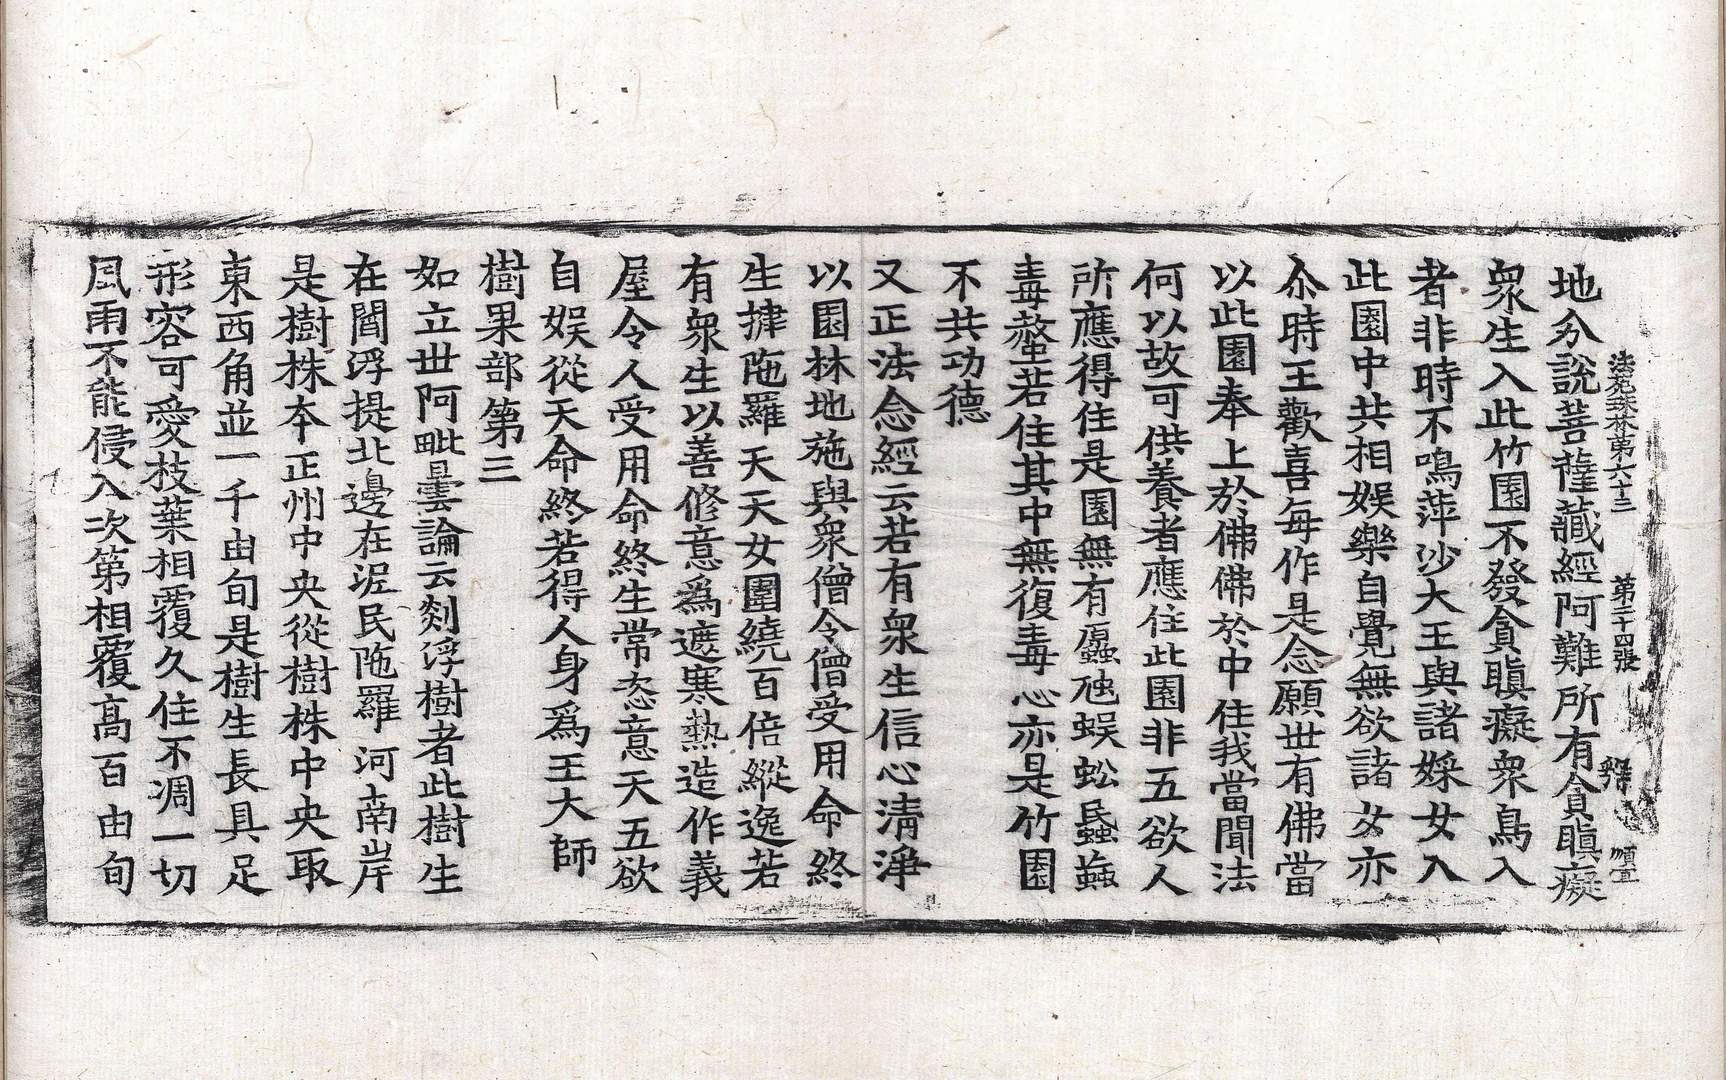 法苑珠林第六十三 第二十四張 群
地分說菩薩藏經阿難所有貪瞋癡
衆生入此竹園不發貪瞋癡衆鳥入
者非時不鳴萍沙大王與諸婇女入
此園中共相娛樂自覺無欲諸女亦
尒時王歡喜每作是念願世有佛當
以此園奉上於佛佛於中住我當聞法
何以故可供養者應住此園非五欲人
所應得住是園無有虺蜈蚣蟁蝱
毒螫若住其中無復毒心亦是竹園
不共功德
又正法念經云若有衆生信心清淨
以園林地施與衆僧令僧受用命終
生揵陁羅天天女圍繞百倍縱逸若
有衆生以善修意爲遮寒熱造作義
屋令人受用命終生常恣意天五欲
自娛從天命終若得人身爲王大師
樹果部第三
如立世阿毗曇論云剡浮樹者此樹生
在閻浮提北邊在泥民陁羅河南岸
是樹株本正州中央從樹株中央取
東西角並一千由旬是樹生長具足
形容可愛枝葉相覆久住不凋一切
風雨不能侵入次第相覆高百由旬